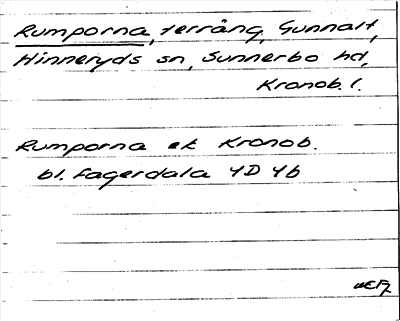 Rumporna, terräng, Gunnalt,
Hinneryds sn, Sunnerbo hd,
Kronob. l.
Rumporna ek Kronob.
bl. Fagerdala 4D 4b